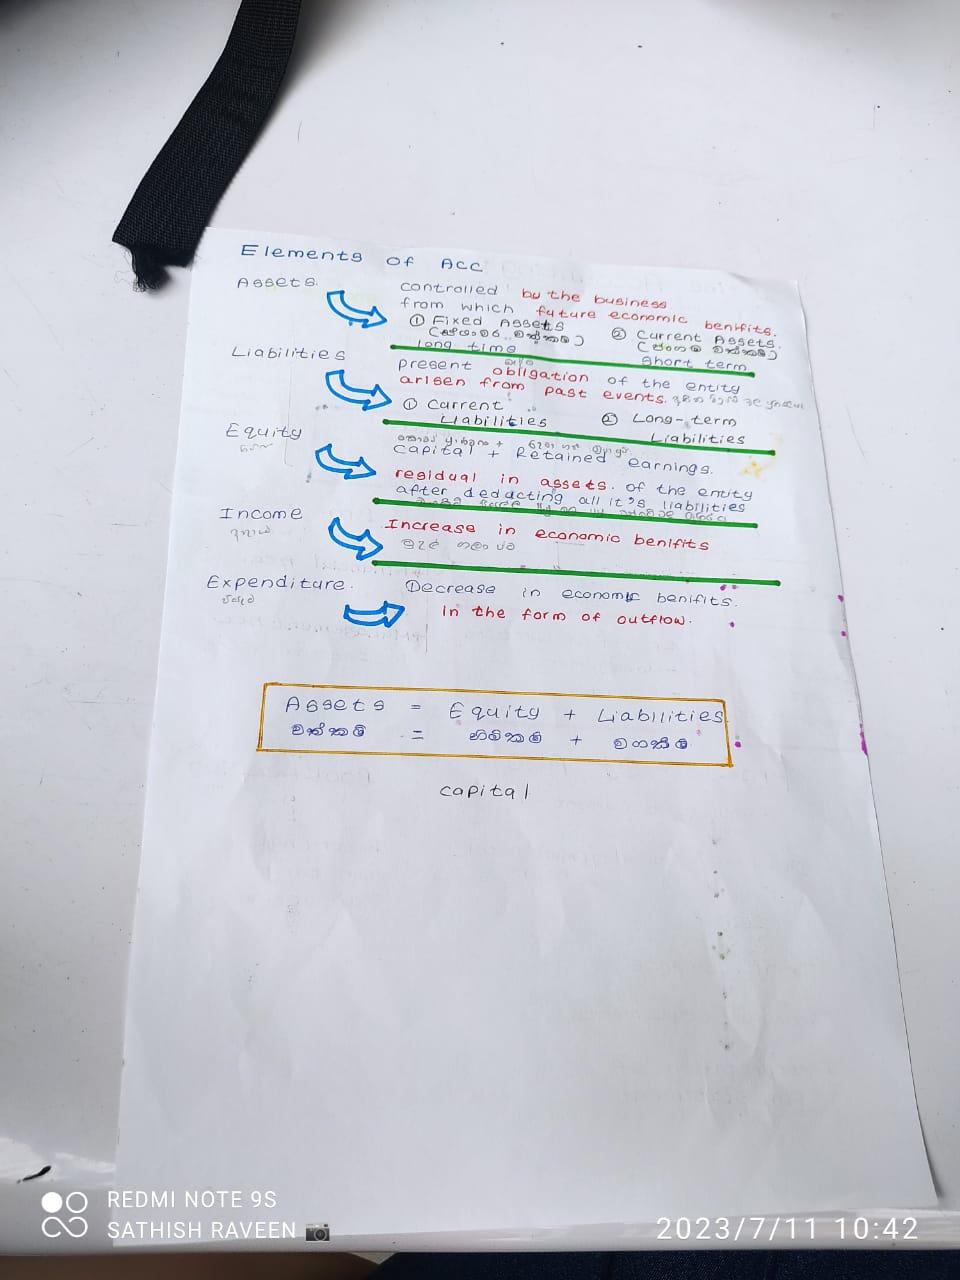 Elements of Acc
Assets.
controlled by the business
from which future economic benifits.
① Fixed Assets
② Current Assets.
long time
Short term
Liabilities
present obligation of the entity
arisen from past events.
① Current
Liabilities
② Long-term
Liabilities
Equity
capital + Retained earnings.
residual in assets. of the entity
after deducting all it's liabilities
Income
Increase in economic benifits
Expenditure.
Decrease in economic benifits.
in the form of outflow.
Assets = Equity + Liabilities
වත්කම් = හිමිකම් + වගකීම්
capital
REDMI NOTE 9S
SATHISH RAVEEN
2023/7/11 10:42